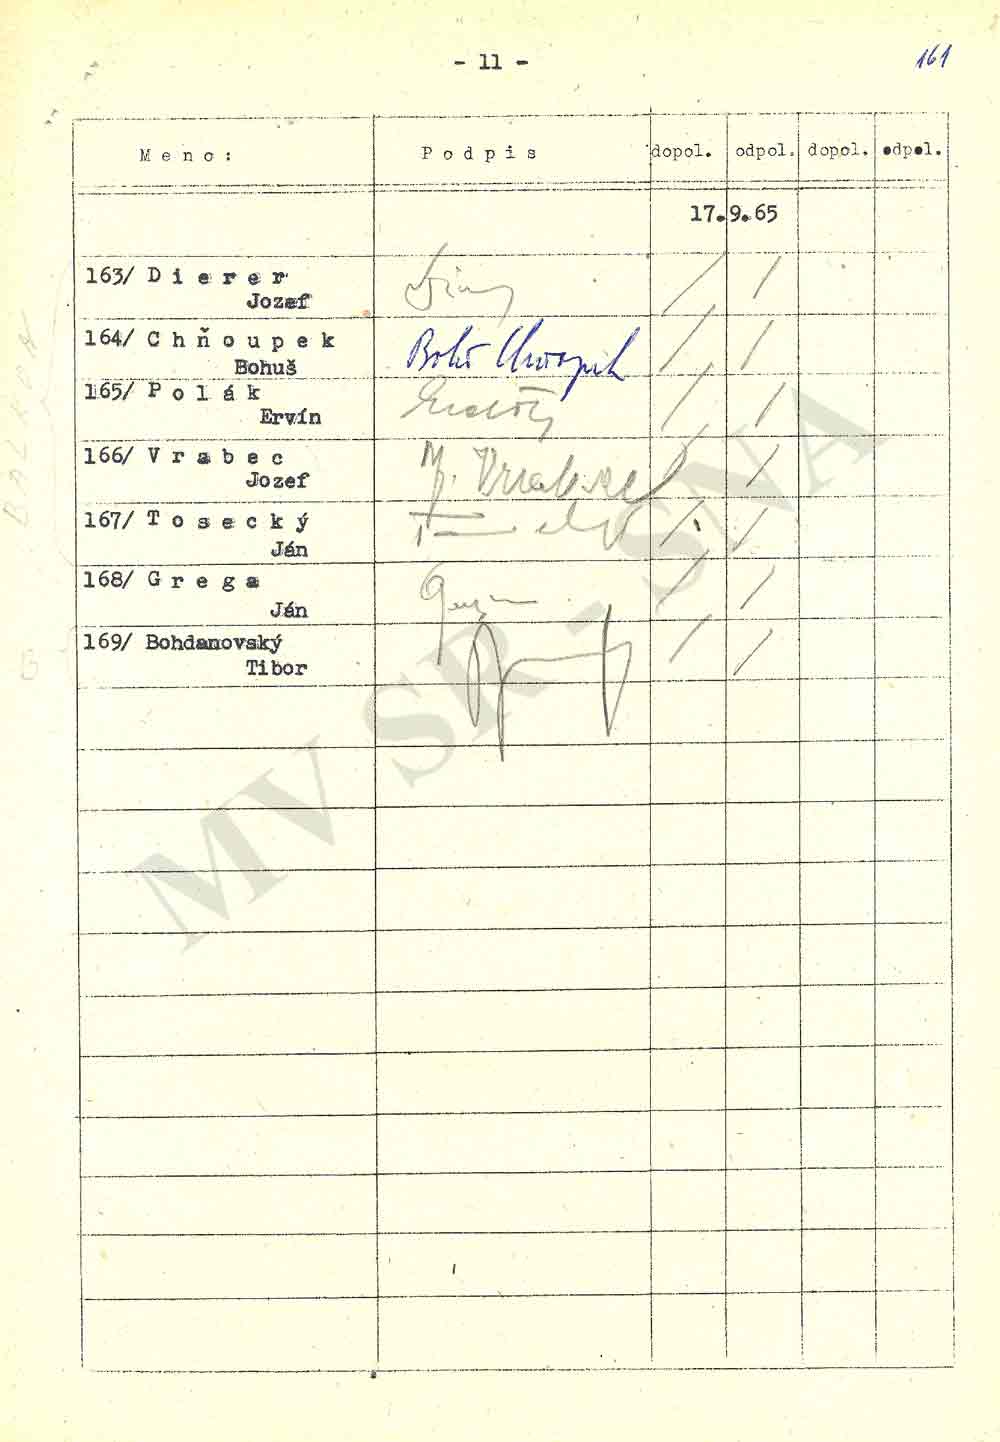 - 11 -
161
Meno: Podpis dopol. odpol. dopol. odpol.
17.9.65
163/ Dierer
Jozef
164/ Chňoupek
Bohuš Chňoupek
Bohuš
165/ Polák
Ervín
166/ Vrabec
J. Vrabec
Jozef
167/ Tosecký
Ján
168/ Grega
Ján
169/ Bohdanovský
Tibor
MV SR - SNA